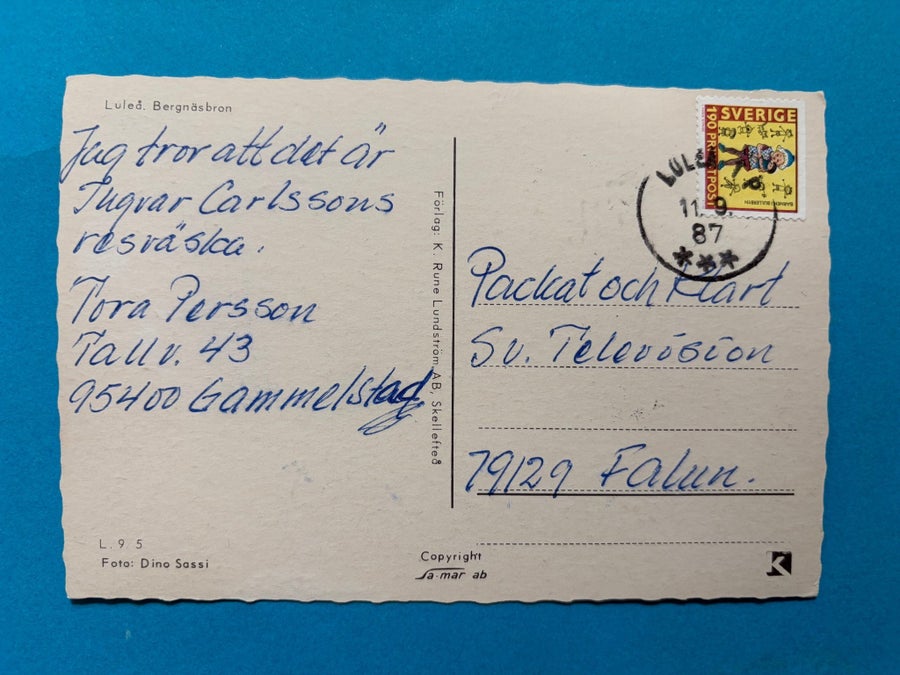 Luleå. Bergnäsbron
Jag tror att det är
Ingvar Carlssons
resväska.
Tora Persson
Tallv. 43
95400 Gammelstad
L. 9 5
Foto: Dino Sassi
Förlag: K. Rune Lundström AB, Skellefteå
Copyright
Sa-mar ab
SVERIGE
190 PRIVATPOST
BARNEN I BULLERBYN
11. 9.
87
Packat och Klart
Sv. Television
79129 Falun.
K